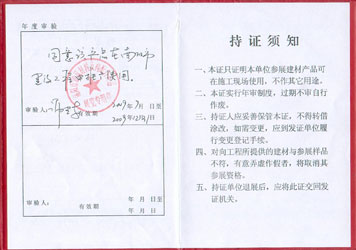 年度审验
同意该产品在南
重点工程中推广使用。
审验人:
有效期
2009年3月 日至
2009年12月31日
审验人:
有效期
年 月 日至
年 月 日
持证须知
一、本证只证明本单位参展建材产品可
在施工现场使用,不作其它用途。
二、本证实行年审制度,过期不审自行
作废。
三、持证人应妥善保管本证,不得转借
涂改,如需变更,应到发证单位履
行变更登记手续。
四、对向工程所提供的建材与参展样品
不符,有意弄虚作假者,将取消其
参展资格。
五、持证单位退展后,应将此证交回发
证机关。